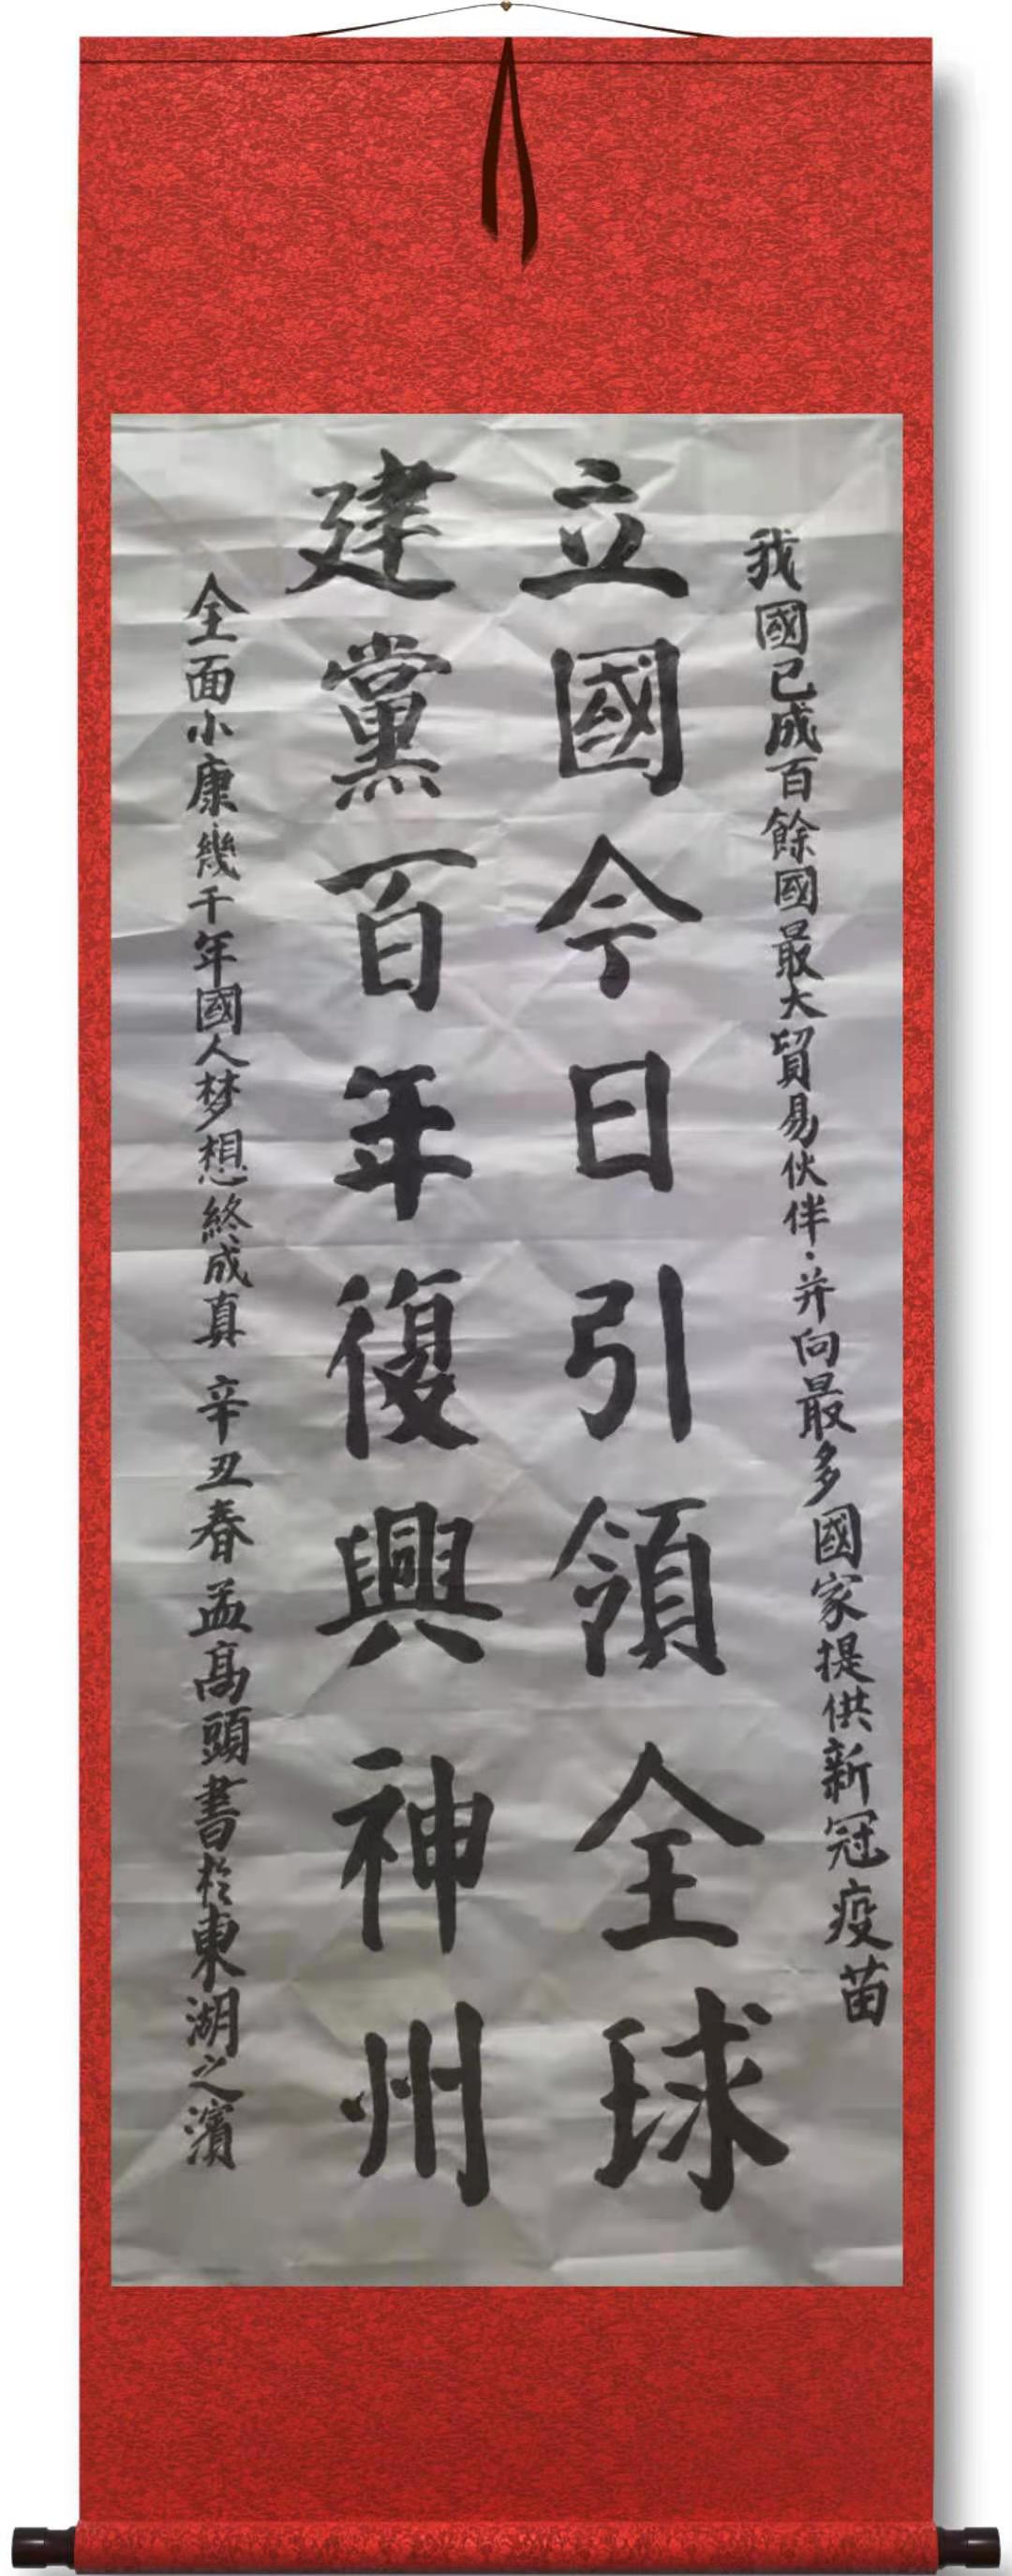 我國已成百餘國最大貿易伙伴·并向最多國家提供新冠疫苗
立國今日引領全球
建黨百年復興神州
全面小康幾千年國人梦想終成真 辛丑春孟髙頭書於東湖之濱